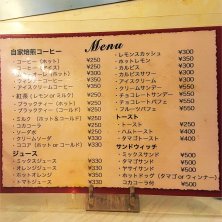 Menu
自家焙煎コーヒー
・コーヒー（ホット） ¥250
・コーヒー（アイス） ¥250
・カフェ・オーレ（ホット） ¥350
・ウィンナーコーヒー ¥350
・アイスクリームコーヒー ¥350
・紅茶（レモン or ミルク） ¥250
・ブラックティー（ホット） ¥250
・ブラックティー（アイス） ¥250
・ミルク（ホット＆コールド） ¥250
・コカコーラ ¥250
・ソーダ水 ¥250
・クリームソーダ ¥330
・ココア（ホット or コールド） ¥330
ジュース
・ミックスジュース ¥330
・オレンジジュース ¥330
・ホットオレンジ ¥330
・トマトジュース ¥330
・レモンスカッシュ ¥300
・ホットレモン ¥350
・カルピス ¥300
・カルピスサワー ¥350
・アイスクリーム ¥300
・クリームサンデー ¥550
・チョコレートサンデー ¥550
・フルーツパフェ ¥550
・チョコレートパフェ ¥550
トースト
・トースト ¥200
・ハムトースト ¥400
・タマゴトースト ¥400
サンドウィッチ
・ミックスサンド ¥500
・タマゴサンド ¥500
・ヤサイサンド ¥500
・ホットドッグ（タマゴ or ウィンナー）
コカコーラ付 ¥500